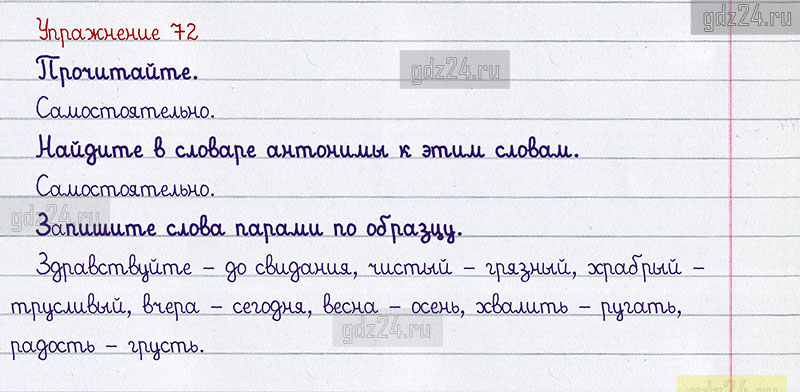 gdz24.ru
Упражнение 72
Прочитайте.
gdz24.ru
Самостоятельно.
Найдите в словаре антонимы к этим словам.
Самостоятельно.
gdz24.ru
Запишите слова парами по образцу.
Здравствуйте – до свидания, чистый – грязный, храбрый –
трусливый, вчера – сегодня, весна – осень, хвалить – ругать,
gdz24.ru
радость – грусть.
gdz24.ru